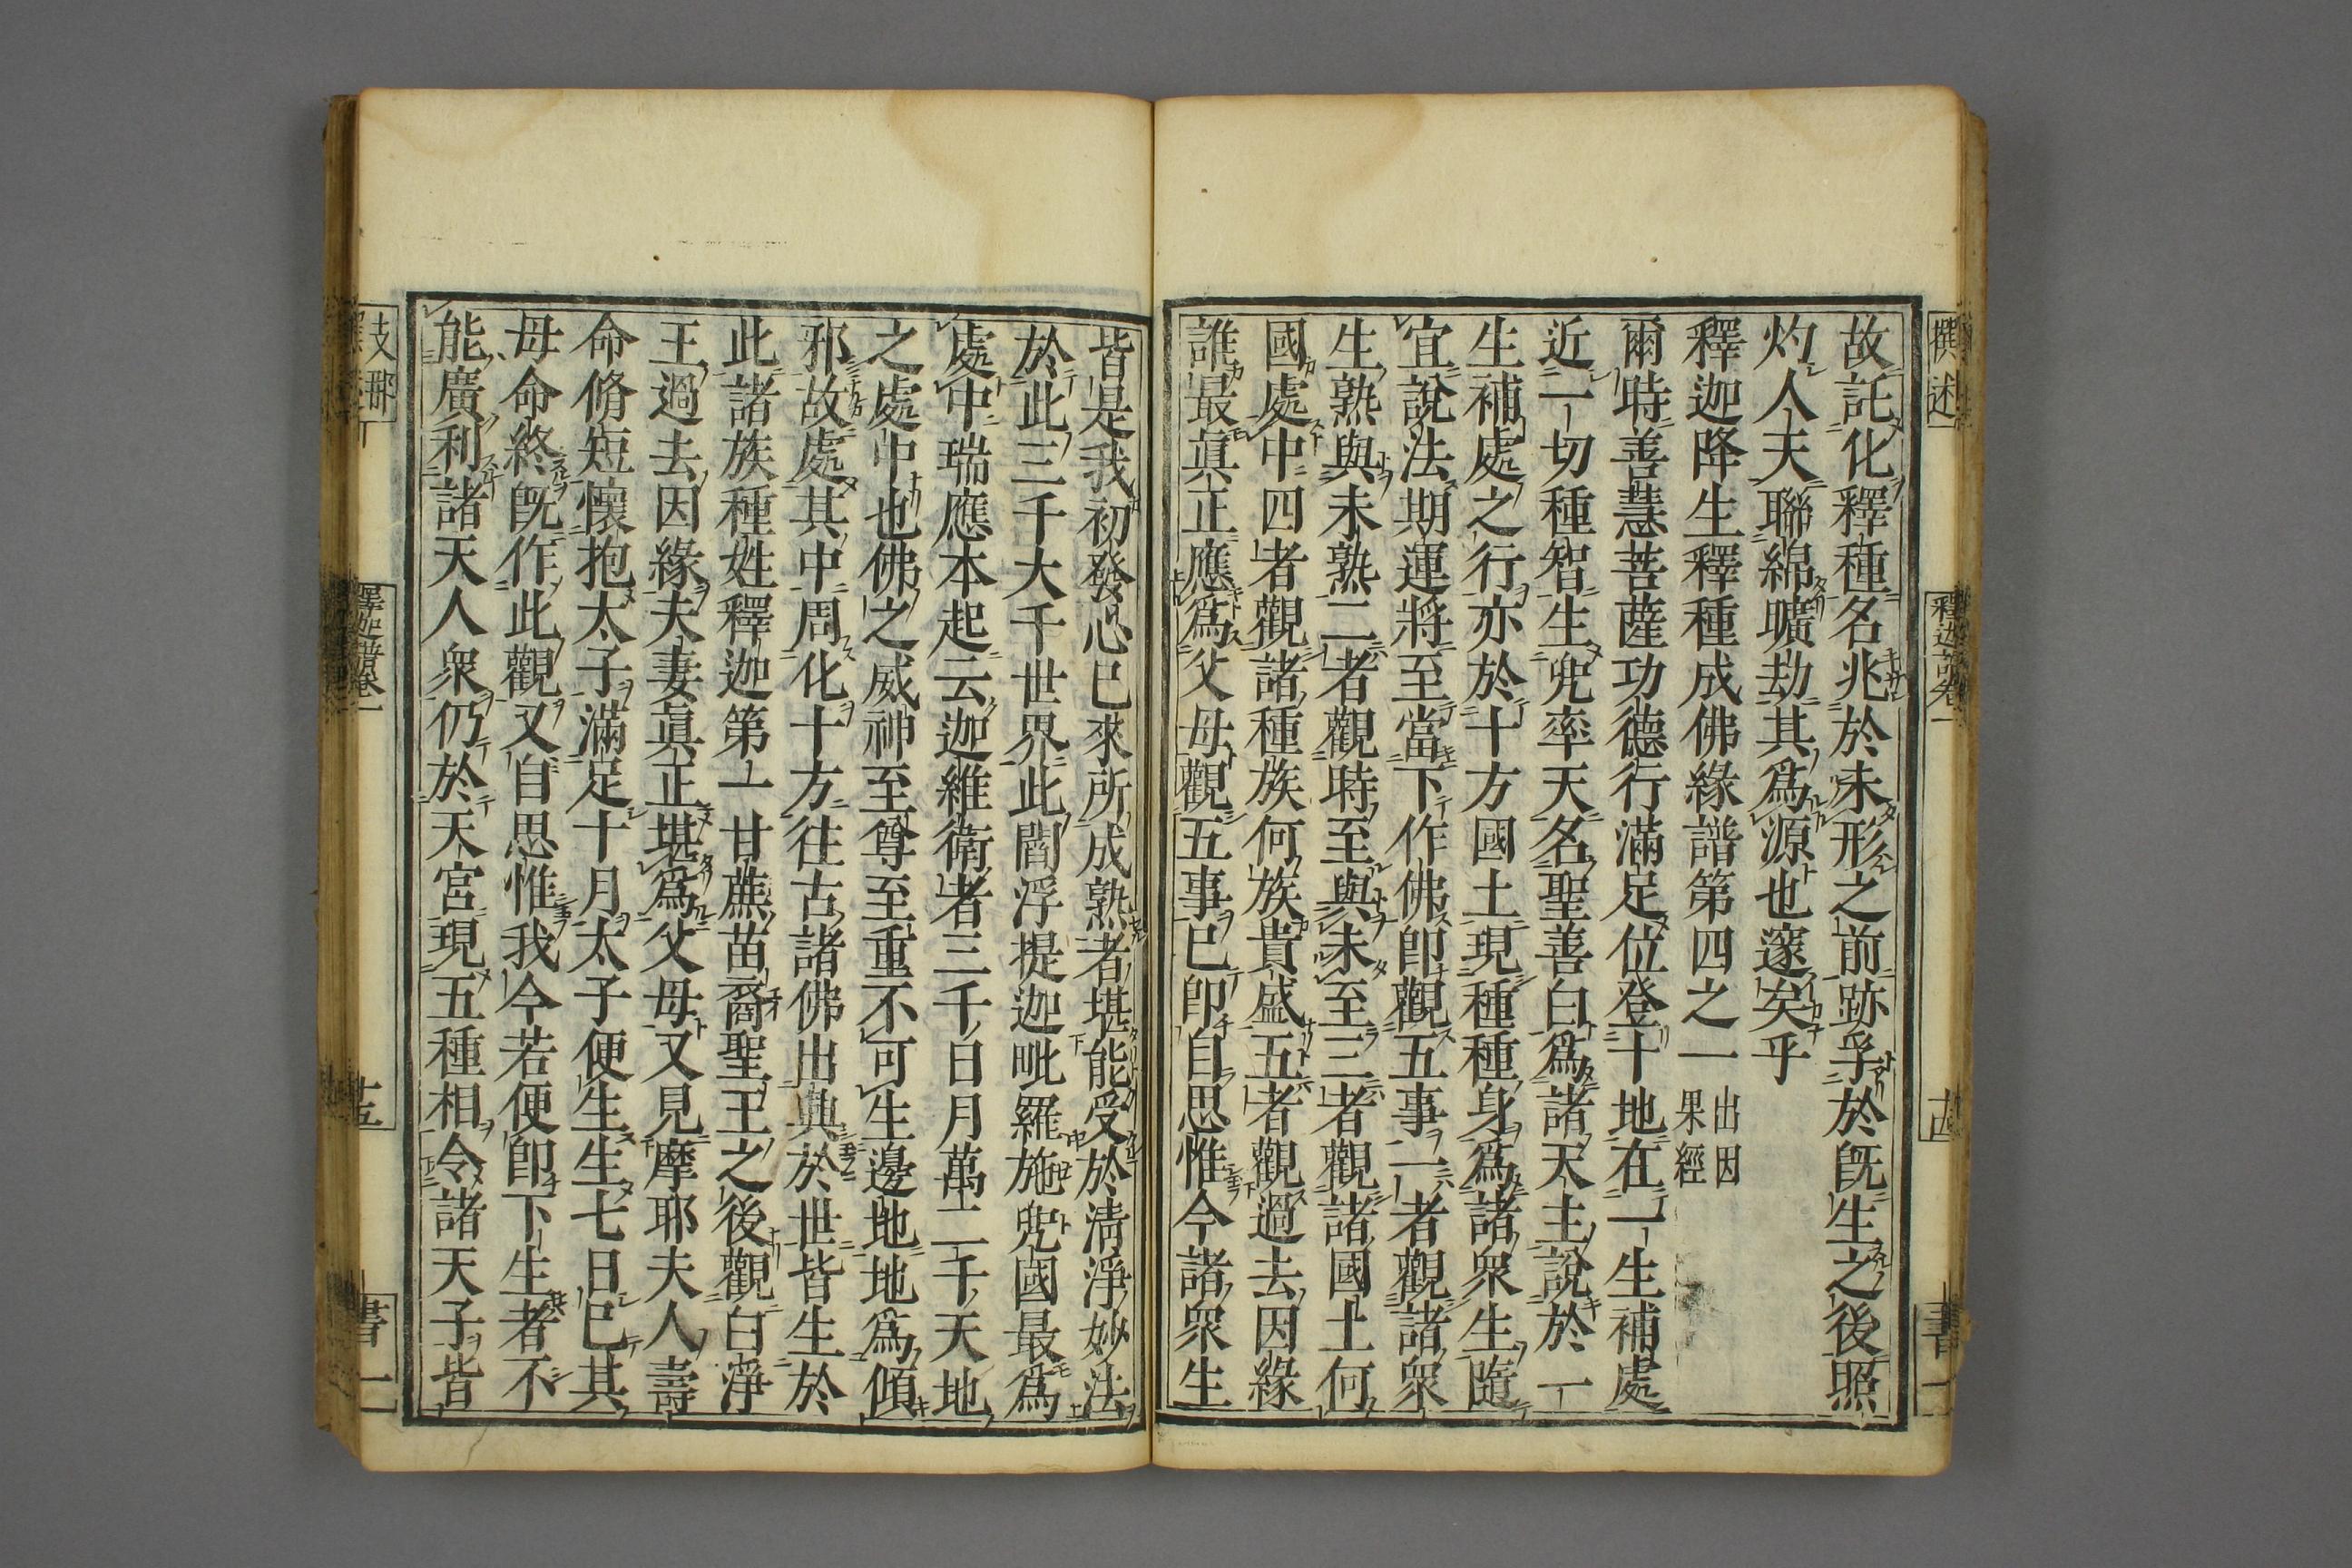 撰述
釋迦譜卷一
書一
故託化釋種名兆於未形之前跡孚於旣生之後照
灼人天聯綿曠劫其爲源也邃矣乎
釋迦降生釋種成佛緣譜第四之一
出因
果經
爾時善慧菩薩功德行滿足位登十地在一生補處
近一切種智生兜率天名聖善白爲諸天主說於一
生補處之行亦於十方國土現種種身爲諸衆生隨
宜說法期運將至當下作佛卽觀五事一者觀諸衆
生熟與未熟二者觀時至與未至三者觀諸國土何
國處中四者觀諸種族何族貴盛五者觀過去因緣
誰最眞正應爲父母觀五事已卽自思惟今諸衆生
皆是我初發心已來所成熟者堪能受於淸淨妙法
於此三千大千世界此閻浮提迦毗羅施兜國最爲
處中瑞應本起云迦維衛者三千日月萬二千天地
之處中也佛之威神至尊至重不可生邊地地爲傾
邪故處其中周化十方往古諸佛出興於世皆生於
此諸族種姓釋迦第一甘蔗苗裔聖王之後觀白淨
王過去因緣夫妻眞正堪爲父母又見摩耶夫人壽
命脩短懷抱太子滿足十月太子便生生七日已其
母命終旣作此觀又自思惟我今若便卽下生者不
能廣利諸天人衆仍於天宮現五種相令諸天子皆
支那
釋迦譜卷一
十五
書一